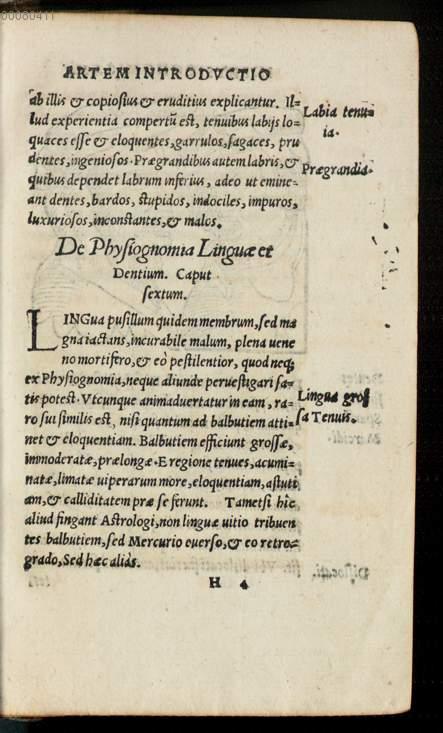 00080411
ARTEM INTRODVCTIO
ab illis & copiosius & eruditius explicantur. Il-
lud experientia compertũ est, tenuibus labijs lo-
quaces esse & eloquentes, garrulos, sagaces, pru
dentes, ingeniosos. Prægrandibus autem labris, &
quibus dependet labrum inferius, adeo ut emine-
ant dentes, bardos, stupidos, indociles, impuros,
luxuriosos, inconstantes, & malos.
Labia tenu-
ia.
Prægrandia.
De Physiognomia Linguæ et
Dentium. Caput
sextum.
LINGua pusillum quidem membrum, sed ma
gna iactans, incurabile malum, plena uene
no mortifero, & eò pestilentior, quod neq;
ex Physiognomia, neque aliunde peruestigari sa-
tis potest. Vtcunque animaduertatur in eam, ra-
ro sui similis est, nisi quantum ad balbutiem atti-
net & eloquentiam. Balbutiem efficiunt grossæ,
immoderatæ, prælongæ. E regione tenues, acumi-
natæ, limatæ uiperarum more, eloquentiam, astuti
am, & calliditatem præ se ferunt. Tametsi hîc
aliud fingant Astrologi, non linguæ uitio tribuen
tes balbutiem, sed Mercurio euerso, & eo retro-
grado, Sed hæc aliâs.
Lingua gros
sa Tenuis.
H 4